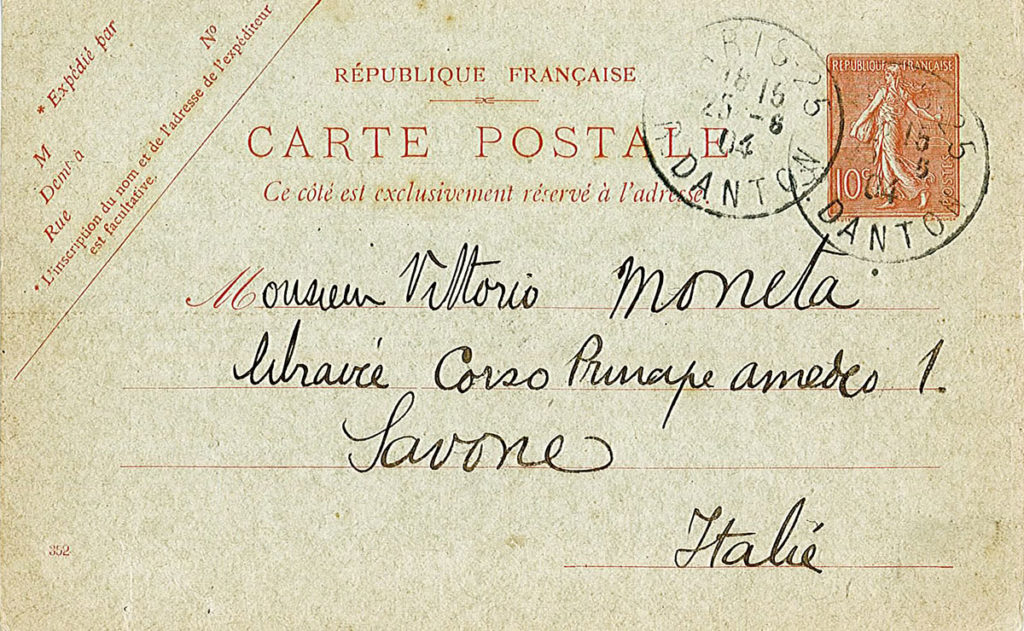 * Expédié par
M
Demt à
Rue Nº
* L'inscription du nom et de l'adresse de l'expéditeur
est facultative.
RÉPUBLIQUE FRANÇAISE
CARTE POSTALE
Ce côté est exclusivement réservé à l'adresse.
PARIS-25
18 15
25 -8
04
R. DANTON
RÉPUBLIQUE FRANÇAISE
10c
POSTES
25
15
8
04
DANTON
Monsieur Vittorio Moneta
librairie Corso Principe amedeo 1.
Savone
Italie
352